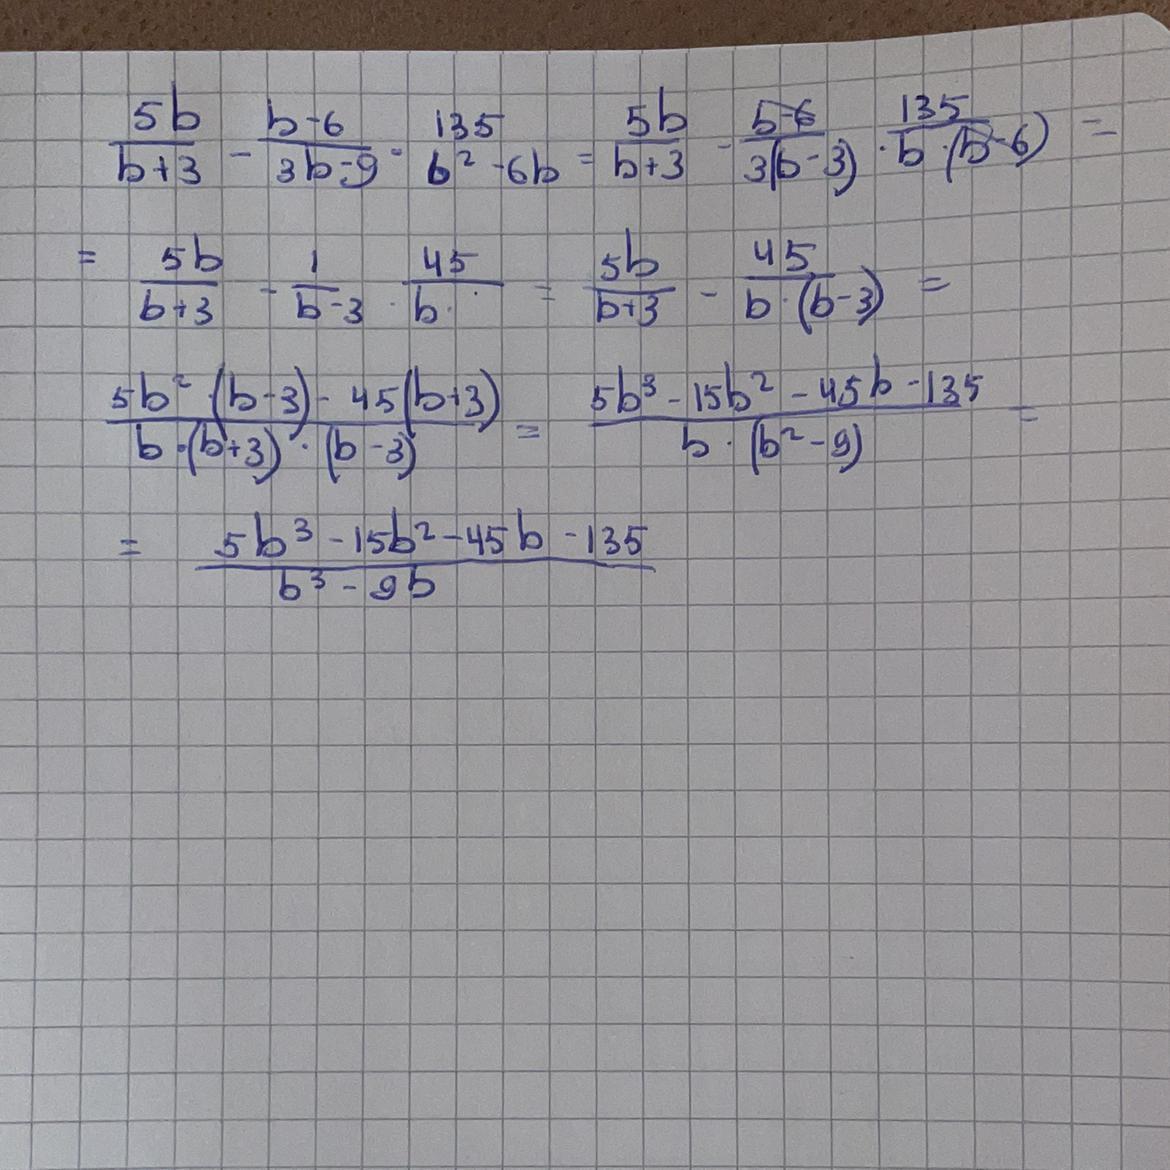 5b/(b+3) - (b-6)/(3b-9) · 135/(b²-6b) = 5b/(b+3) - (b-6)/(3(b-3)) · 135/(b·(b-6)) =
= 5b/(b+3) - 1/(b-3) · 45/(b·) = 5b/(b+3) - 45/(b·(b-3)) =
(5b²·(b-3) - 45(b+3))/(b·(b+3)·(b-3)) = (5b³-15b²-45b-135)/(b·(b²-9)) =
= (5b³-15b²-45b-135)/(b³-9b)